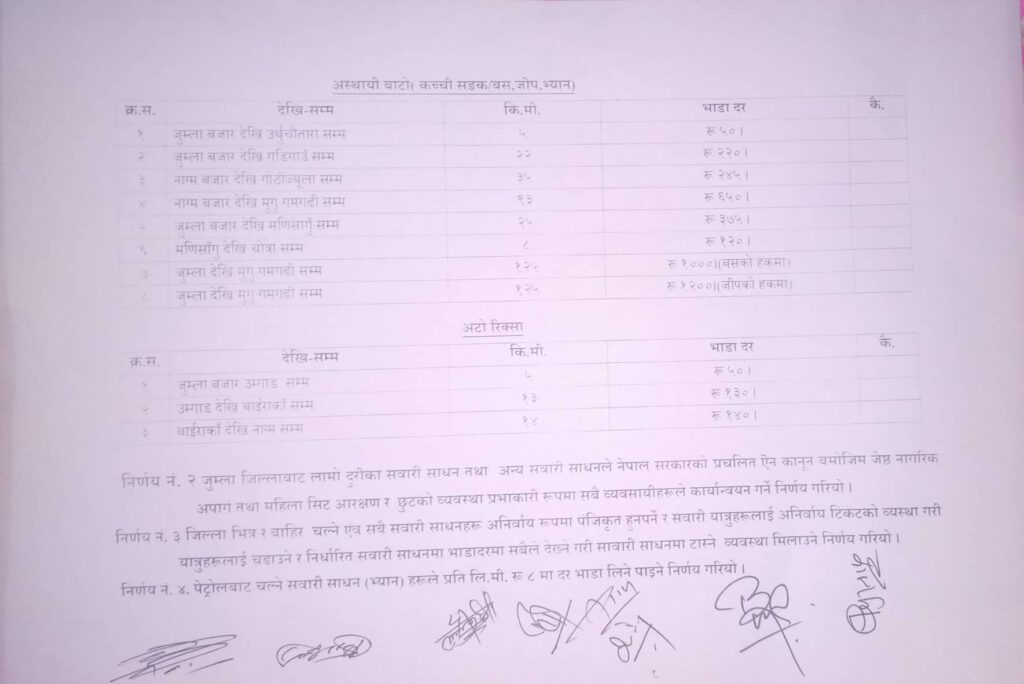 अस्थायी बाटो( कच्ची सडक/बस,जीप,भ्यान)
क्र.स. देखि-सम्म कि.मी. भाडा दर कै.
१ जुम्ला बजार देखि उर्थुचौतारा सम्म ५ रू ५०।
२ जुम्ला बजार देखि गडिगाउँ सम्म २२ रू २२०।
३ नाग्म बजार देखि गोठीज्यूला सम्म ३५ रू २४५।
४ नाग्म बजार देखि मुगु गमगढी सम्म ९३ रू ६५०।
५ जुम्ला बजार देखि मणिसागुँ सम्म २५ रू ३७५।
६ मणिसाँगु देखि चोत्रा सम्म ८ रू १२०।
७ जुम्ला देखि मुगु गमगढी सम्म १२५ रू १०००।(बसको हकमा)
८ जुम्ला देखि मुगु गमगढी सम्म १२५ रू १२००।(जीपको हकमा)
अटो रिक्सा
क्र.स. देखि-सम्म कि.मी. भाडा दर कै.
१ जुम्ला बजार उम्गाड सम्म ५ रू ५०।
२ उम्गाड देखि बाईराकाँ सम्म १३ रू १३०।
३ बाईराकाँ देखि नाग्म सम्म १४ रू १४०।
निर्णय नं. २ जुम्ला जिल्लाबाट लामो दुरीका सवारी साधन तथा अन्य सवारी साधनले नेपाल सरकारको प्रचलित ऐन कानून बमोजिम जेष्ठ नागरिक
अपागं तथा महिला सिट आरक्षण र छुटको व्यवस्था प्रभाकारी रूपमा सबै व्यवसायीहरूले कार्यान्वयन गर्ने निर्णय गरियो।
निर्णय नं. ३ जिल्ला भित्र र बाहिर चल्ने एव सबै सवारी साधनहरू अनिर्वाय रूपमा पंजिकृत हुनपर्ने र सवारी यात्रुहरूलाई अनिर्वाय टिकटको व्यस्था गरी
यात्रुहरूलाई चढाउने र निर्धारित सवारी साधनमा भाडादरमा सबैले देख्ने गरी सावारी साधनमा टास्ने व्यवस्था मिलाउने निर्णय गरियो।
निर्णय नं. ४. पेट्रोलबाट चल्ने सवारी साधन (भ्यान) हरूले प्रति लि.मी. रू ८ मा दर भाडा लिने पाइने निर्णय गरियो।